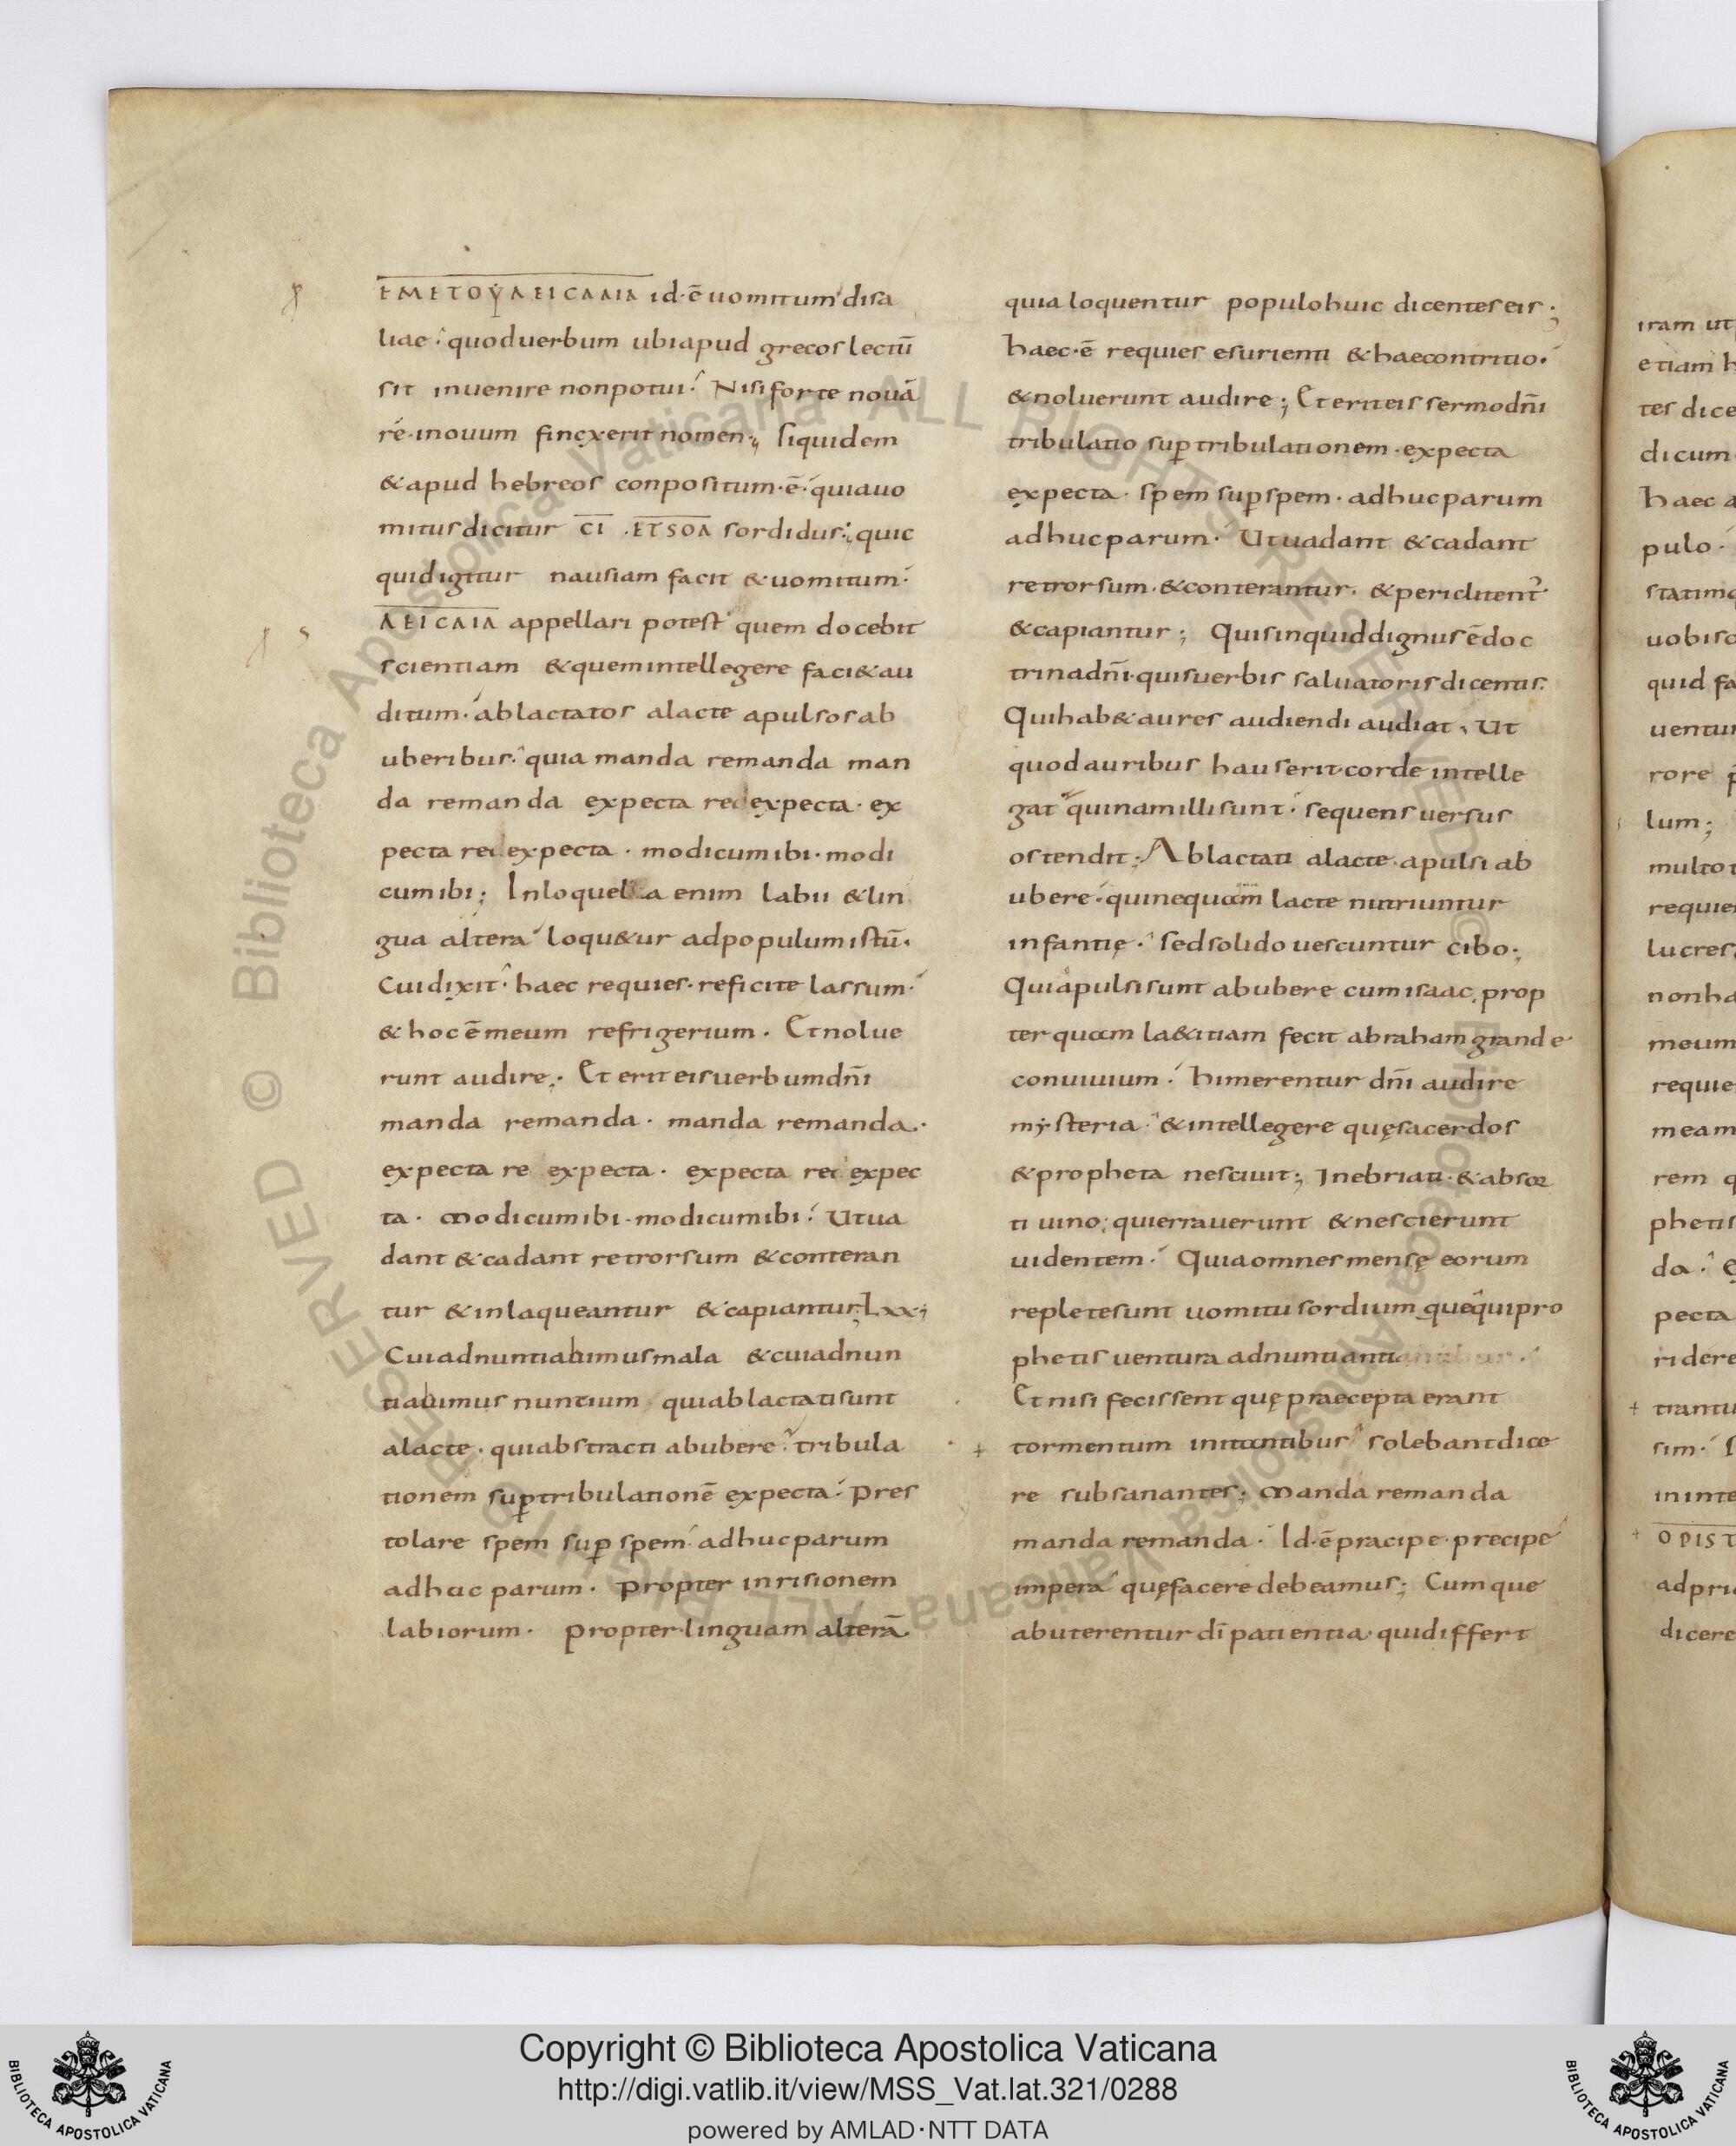 ΕΜΕΤΟΥΛΕΙCΑΛΙΑ id·ē uomitum disa
liae quod uerbum ubi apud grecos lectū
sit inuenire non potui. Nisi forte nouā
ré·inouum fincxerit nomen; siquidem
& apud hebreos conpositum·ē· quia uo
mitus dicitur CI .ETSOA sordidus; quic
quid igitur nausiam facit & uomitum·
ΛΕΙCΑΙΑ appellari potest quem docebit
scientiam & quem intellegere faci& au
ditum· ablactatos a lacte apulsos ab
uberibus· quia manda remanda man
da remanda expecta re expecta· ex
pecta re expecta · modicum ibi· modi
cum ibi; In loquella enim labii & lin
gua altera loqu&ur ad populum istū·
Cui dixit· haec requies· reficite lassum·
& hoc ē meum refrigerium· Et nolue
runt audire;· Et erit eis uerbum dn̄i
manda remanda · manda remanda·
expecta re expecta· expecta re expec
ta· modicum ibi· modicum ibi· Ut ua
dant & cadant retrorsum & conteran
tur & inlaqueantur & capiantur; Lxx;
Cui adnuntiabimus mala & cui adnun
tiabimus nuntium qui ablactati sunt
a lacte· qui abstracti ab ubere· tribula
tionem sup tribulationē expecta· Pres
tolare spem sup spem adhuc parum
adhuc parum· Propter inrisionem
labiorum· Propter linguam alterā
quia loquentur populo huic dicentes eis;
haec·ē requies esurienti & haec contritio·
& noluerunt audire; Et erit eis sermo dn̄i
tribulatio sup tribulationem· expecta
expecta· spem sup spem· adhuc parum
adhuc parum· Ut uadant & cadant
retrorsum· & conterantur· & periclitent
& capiantur; Quis inquid dignus ē doc
trina dn̄i· quis uerbis saluatoris dicentis·
Qui hab& aures audiendi audiat, Ut
quod auribus hauserit corde intelle
gat qui nam illi sunt· sequens uersus
ostendit; Ablactati a lacte· apulsi ab
ubere· qui nequam lacte nutriuntur
infantię· sed solido uescuntur cibo;
Qui apulsi sunt ab ubere cum isaac, prop
ter quam la&itiam fecit abraham grande
conuiuium· hi merentur dn̄i audire
mẏsteria· & intellegere quę sacerdos
& propheta nesciuit; Inebriati· & absor
ti uino; qui errauerunt & nescierunt
uidentem· Quia omnes mensę eorum
replete sunt uomitu sordium que qui pro
phetis uentura adnuntianti
Et nisi fecissent quę praecepta erant
tormentum initantibus solebant dice
re subsanantes; Manda remanda
manda remanda· Id·ē pracipe· precipe
impera quę facere debeamus; Cumque
abuterentur dī patientia· qui differt
iram ut
etiam h
tes dice
dicum
haec a
pulo·
statim
uobis
quid fa
uentu
rore
lum;
multo
requie
lucres
non ha
meum
requie
meam
rem q
phetis
da·
pecta
ridere
+ tiantu
sim·
in inte
OPIST
ad pri
dicere
Copyright © Biblioteca Apostolica Vaticana
http://digi.vatlib.it/view/MSS_Vat.lat.321/0288
powered by AMLAD·NTT DATA
BIBLIOTECA APOSTOLICA VATICANA
BIBLIOTECA APOSTOLICA VATICANA